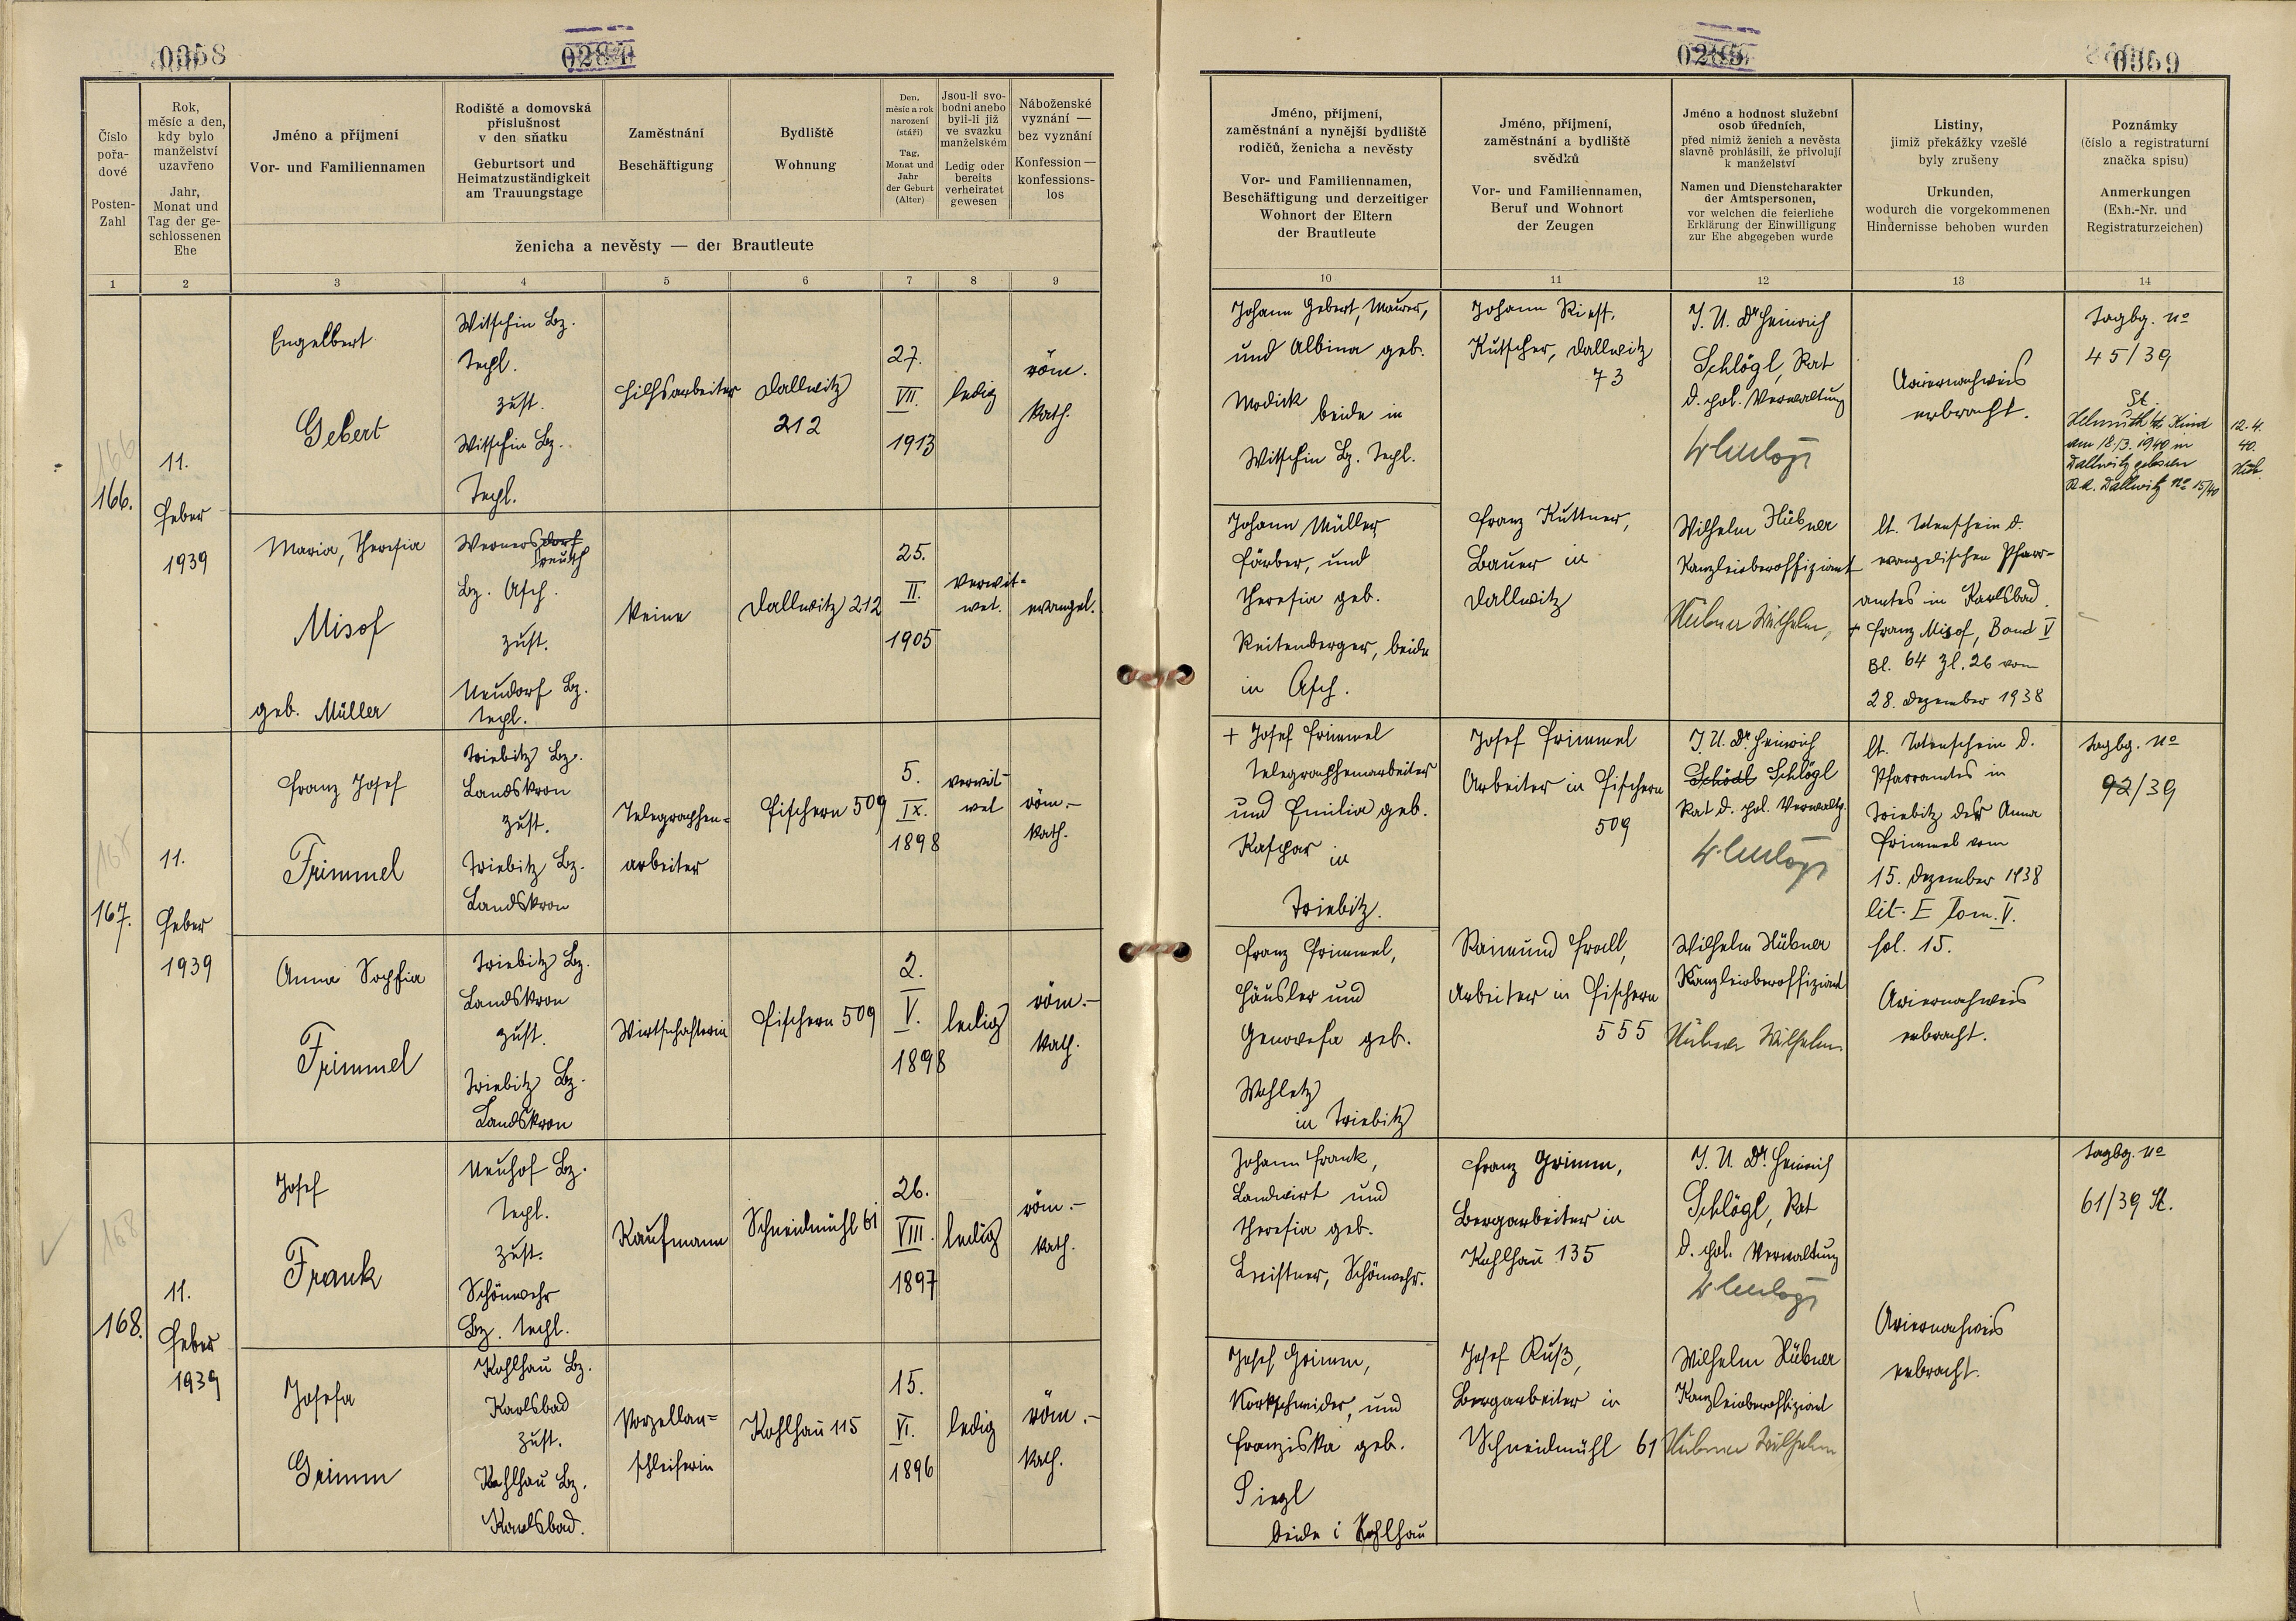 0358
0284
0285
0359
Číslo pořadové
Posten-Zahl
Rok, měsíc a den, kdy bylo manželství uzavřeno
Jahr, Monat und Tag der geschlossenen Ehe
Jméno a příjmení
Vor- und Familiennamen
Rodiště a domovská příslušnost v den sňatku
Geburtsort und Heimatzuständigkeit am Trauungstage
Zaměstnání
Beschäftigung
Bydliště
Wohnung
Den, měsíc a rok narození (stáří)
Tag, Monat und Jahr der Geburt (Alter)
Jsou-li svobodni anebo byli-li již ve svazku manželském
Ledig oder bereits verheiratet gewesen
Náboženské vyznání — bez vyznání
Konfession — konfessionslos
ženicha a nevěsty — der Brautleute
1 2 3 4 5 6 7 8 9
Jméno, příjmení, zaměstnání a nynější bydliště rodičů, ženicha a nevěsty
Vor- und Familiennamen, Beschäftigung und derzeitiger Wohnort der Eltern der Brautleute
Jméno, příjmení, zaměstnání a bydliště svědků
Vor- und Familiennamen, Beruf und Wohnort der Zeugen
Jméno a hodnost služební osob úředních,
před nimiž ženich a nevěsta slavně prohlásili, že přivolují k manželství
Namen und Dienstcharakter der Amtspersonen,
vor welchen die feierliche Erklärung der Einwilligung zur Ehe abgegeben wurde
Listiny,
jimiž překážky vzešlé byly zrušeny
Urkunden,
wodurch die vorgekommenen Hindernisse behoben wurden
Poznámky
(číslo a registraturní značka spisu)
Anmerkungen
(Exh.-Nr. und Registraturzeichen)
10 11 12 13 14
166
166.
11.
Feber
1939
Engelbert
Gebert
Witschin Bz.
Tepl.
zust.
Witschin Bz.
Tepl.
Hilfsarbeiter
Dallwitz
212
27.
VII.
1913
ledig
röm.
kath.
Johann Gebert, Maurer,
und Albina geb.
Modick
beide in
Witschin Bz. Tepl.
Johann Riest,
Kutscher, Dallwitz
73
J. U. Dr Heinrich
Schlögl, Rat
d. pol. Verwaltung
Ariernachweis
erbracht.
Tagbg. No
45/39
St.
Helmuth Kind
am 18./3. 1940 in
Dallwitz geboren
Dallwitz No 15/40
12.4.
40.
Maria, Theresia
Misof
geb. Müller
Wernersdorf
reuth
Bz. Asch.
zust.
Neudorf Bz.
Tepl.
Keine
Dallwitz 212
25.
II.
1905
verwit-
wet.
evangel.
Johann Müller,
Färber, und
Theresia geb.
Reitenberger, beide
in Asch.
Franz Kuttner,
Bauer in
Dallwitz
Wilhelm Hübner
Kanzleioberoffiziant
Hübner Wilhelm,
lt. Totenschein d.
evangelischen Pfarr-
amtes in Karlsbad.
+ Franz Misof, Band V
Bl. 64 Zl. 26 vom
28. Dezember 1938
167.
11.
Feber
1939
Franz Josef
Frimmel
Triebitz Bz.
Landskron
zust.
Triebitz Bz.
Landskron
Telegraphen=
arbeiter
Fischern 509
5.
IX.
1898
verwit-
wet
röm.-
kath.
+ Josef Frimmel
Telegraphenarbeiter
und Emilia geb.
Kaspar
in
Triebitz.
Josef Frimmel
Arbeiter in Fischern
509
J. U. Dr. Heinrich
Schödl Schlögl
Rat d. pol. Verwaltg.
lt. Totenschein d.
Pfarramtes in
Triebitz der Anna
Frimmel vom
15. Dezember 1938
lit. E Tom. V.
fol. 15.
Tagbg. No
92/39
Anna Sophia
Frimmel
Triebitz Bz.
Landskron
zust.
Triebitz Bz.
Landskron
Wirtschafterin
Fischern 509
2.
V.
1898
ledig
röm.-
kath.
Franz Frimmel,
Häusler und
Genovefa geb.
Wohletz
in Triebitz
Raimund Proll,
Arbeiter in Fischern
555
Wilhelm Hübner
Kanzleioberoffiziant
Hübner Wilhelm
Ariernachweis
erbracht.
168
168.
11.
Feber
1939
Josef
Frank
Neuhof Bz.
Tepl.
zust.
Schönwehr
Bz. Tepl.
Kaufmann
Schneidmühl 61
26.
VIII.
1897
ledig
röm.-
kath.
Johann Frank,
Landwirt und
Theresia geb.
Leistner, Schönwehr.
Franz Grimm,
Bergarbeiter in
Kohlhau 135
J. U. Dr. Heinrich
Schlögl, Rat
d. pol. Verwaltung
Tagbg. No
61/39 St.
Josefa
Grimm
Kohlhau Bz.
Karlsbad
zust.
Kohlhau Bz.
Karlsbad.
Porzellan=
schleiferin
Kohlhau 115
15.
VI.
1896
ledig
röm.-
kath.
Josef Grimm,
Korkschneider, und
Franziska geb.
Siegl
beide i Kohlhau
Josef Ruß,
Bergarbeiter in
Schneidmühl 61
Wilhelm Hübner
Kanzleioberoffiziant
Hübner Wilhelm
Ariernachweis
erbracht.